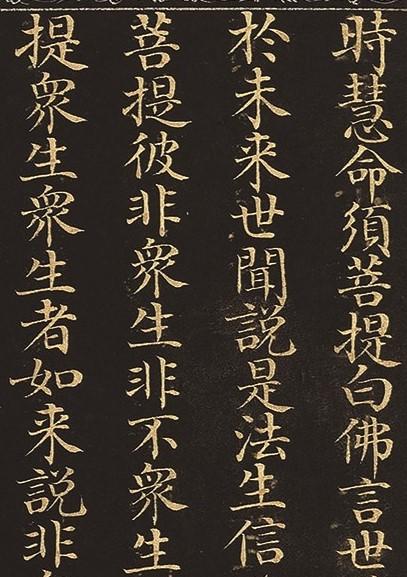 時慧命須菩提白佛言世
扵未来世聞説是法生信
菩提彼非衆生非不衆生
提衆生衆生者如来説非